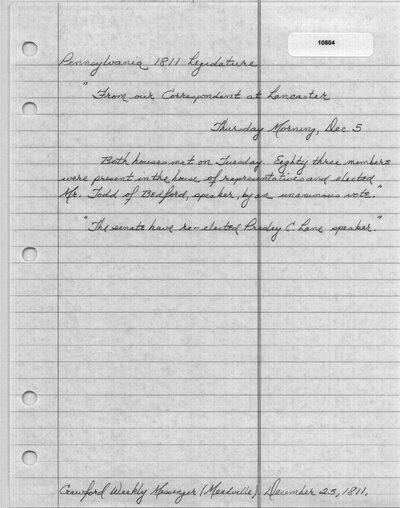 10804
Pennsylvania 1811 Legislature
"From our Correspondent at Lancaster
Thursday Morning, Dec. 5
Both houses met on Tuesday. Eighty three members
were present in the house of representatives and elected
Mr. Todd of Bedford, speaker, by an unanimous vote."
"The senate have re-elected Presley C. Lane speaker."
Crawford Weekly Messenger (Meadville). December 25, 1811.